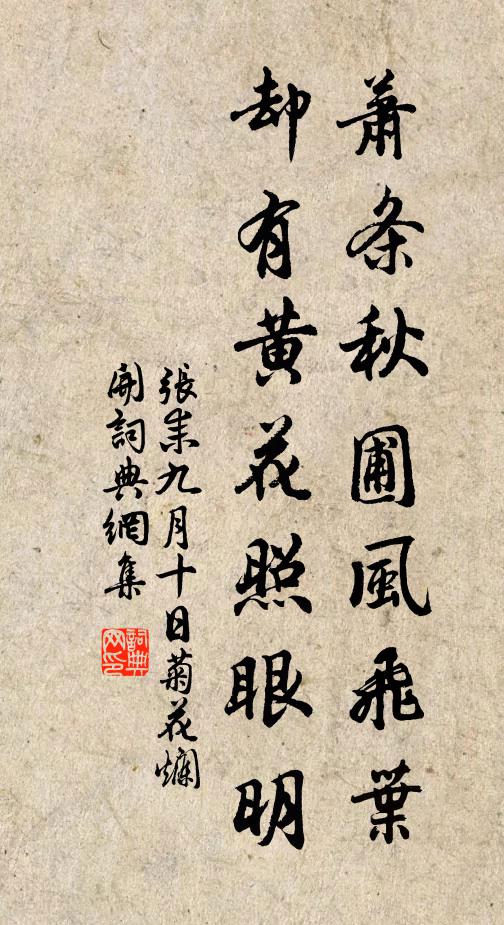 蕭条秋圃風飛葉
却有黃花照眼明
張耒九月十日菊花爛
開詞典網集
詞典
网印